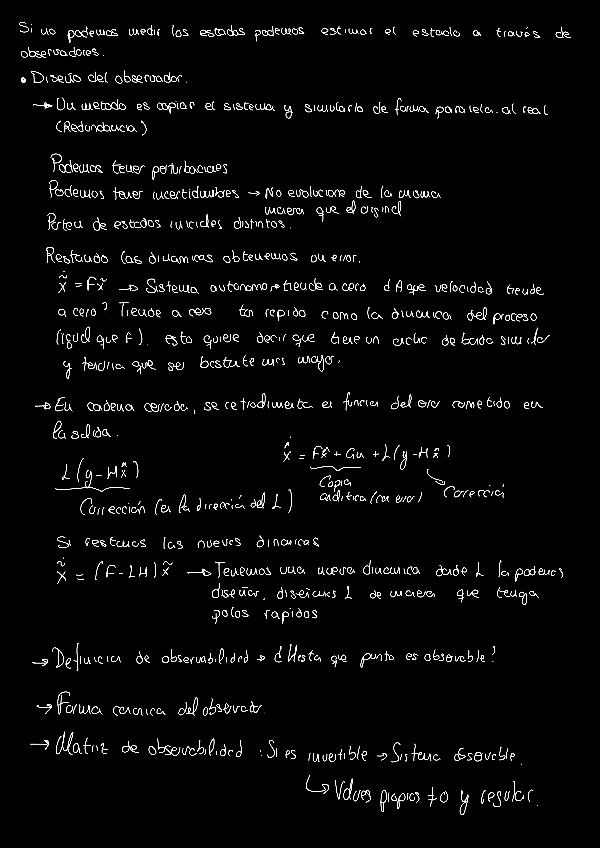 Si no podemos medir los estados podemos estimar el estado a través de
observadores.
• Diseño del observador.
→ Un metodo es copiar el sistema y simularlo de forma paralela al real
(Redundancia)
Podemos tener perturbaciones
Podemos tener incertidumbres → No evolucione de la misma
manera que el original
Parten de estados iniciales distintos.
Restando las dinamicas obtenemos un error.
x̃̇ = Fx̃ → Sistema autonomo, tiende a cero ¿A que velocidad tiende
a cero? Tiende a cero tan rapido como la dinamica del proceso
(igual que F). esto quiere decir que tiene un ancho de banda similar
y tendria que ser bastante mas mayor.
→ En cadena cerrada, se retroalimenta en funcion del error cometido en
la salida.
x̂̇ = Fx̂ + Gu + L(y-Hx̂)
L(y-Hx̂)
Copia
analitica (con error)
Corrección
Corrección (en la dirección del L)
Si restamos las nuevas dinamicas
x̃̇ = (F-LH)x̃ → Tenemos una nueva dinamica donde L la podemos
diseñar, diseñamos L de manera que tenga
polos rapidos
→ Definicion de observabilidad → ¿Hasta que punto es observable?
→ Forma canonica del observador.
→ Matriz de observabilidad : Si es invertible → Sistema observable.
↳ Valores propios ≠0 y regular.